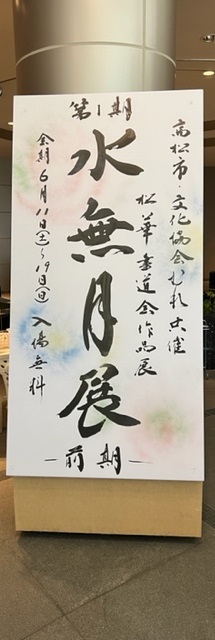 高松市・文化協会むれ共催
松華書道会作品展
第1期
水無月展
前期
会期6月11日(土)～19日(日) 入場無料